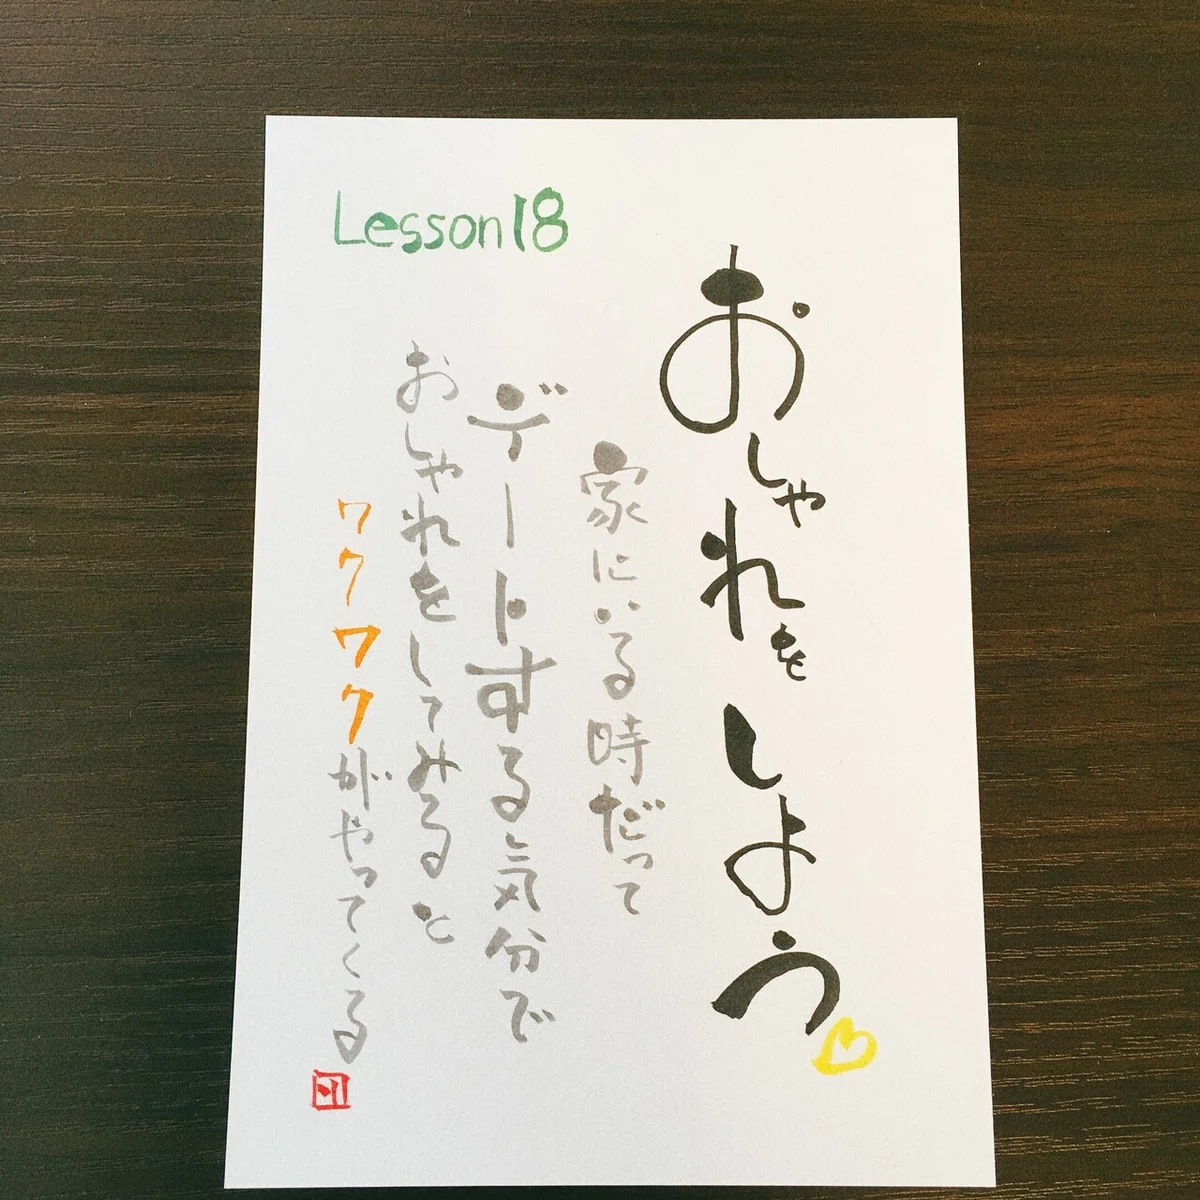 Lesson18
おしゃれをしよう
家にいる時だって
デートする気分で
おしゃれをしてみると
ワクワクがやってくる